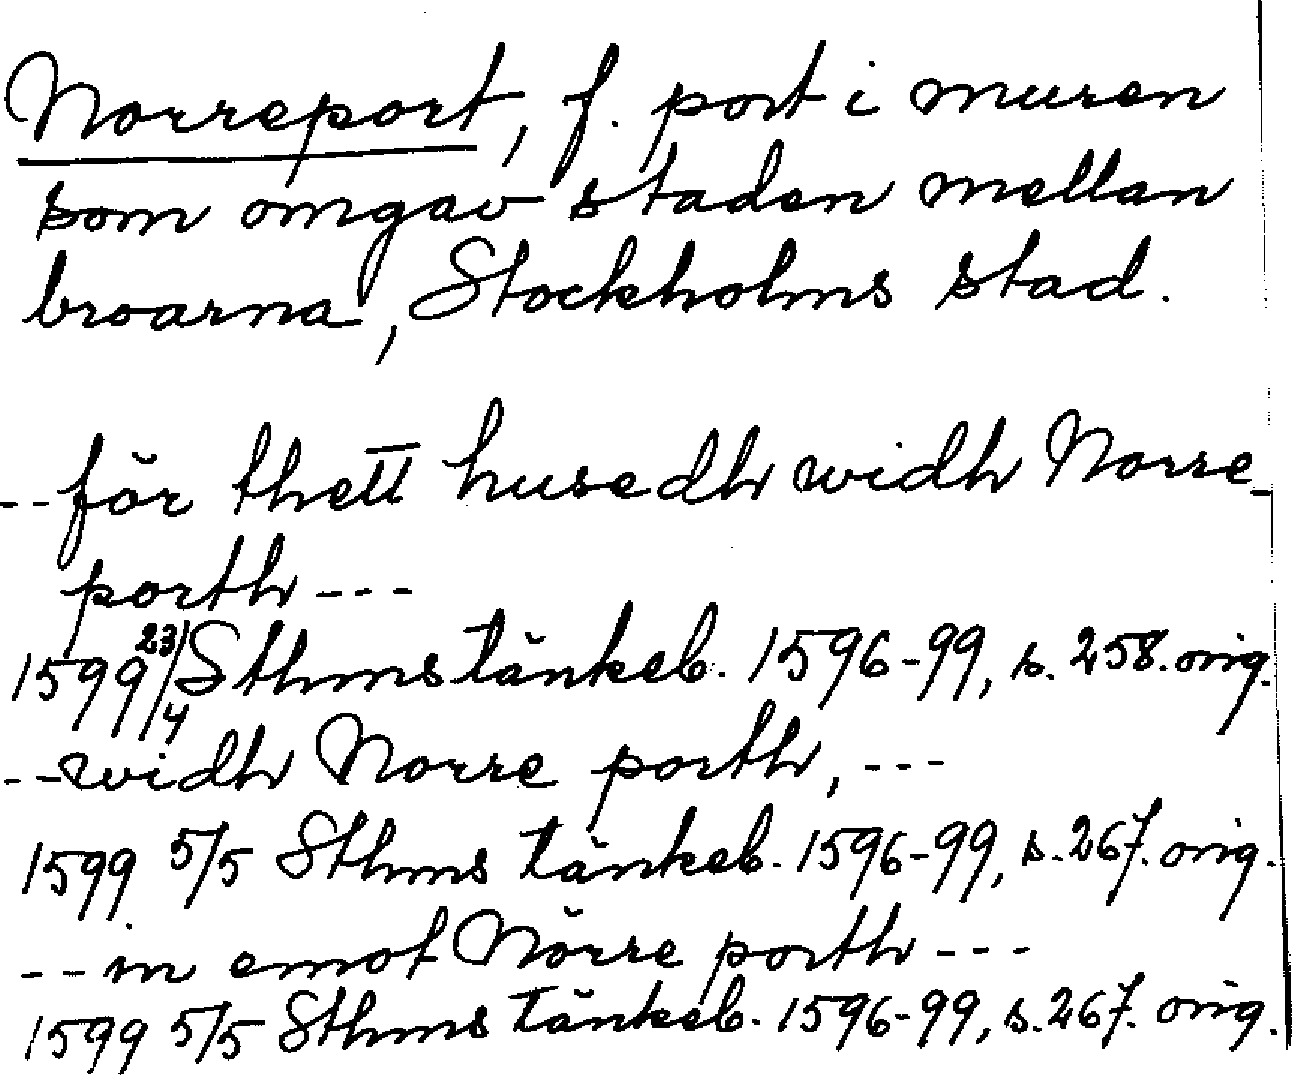 Norreport, f. port i muren
som omgav staden mellan
broarna, Stockholms stad.
--för thett husedh widh Norre-
porth---
1599 23/4 Sthms tänkeb. 1596-99, s. 258. orig.
--widh Norre porth, ---
1599 5/5 Sthms tänkeb. 1596-99, s. 267. orig.
--in emot Nörre porth---
1599 5/5 Sthms tänkeb. 1596-99, s. 267. orig.